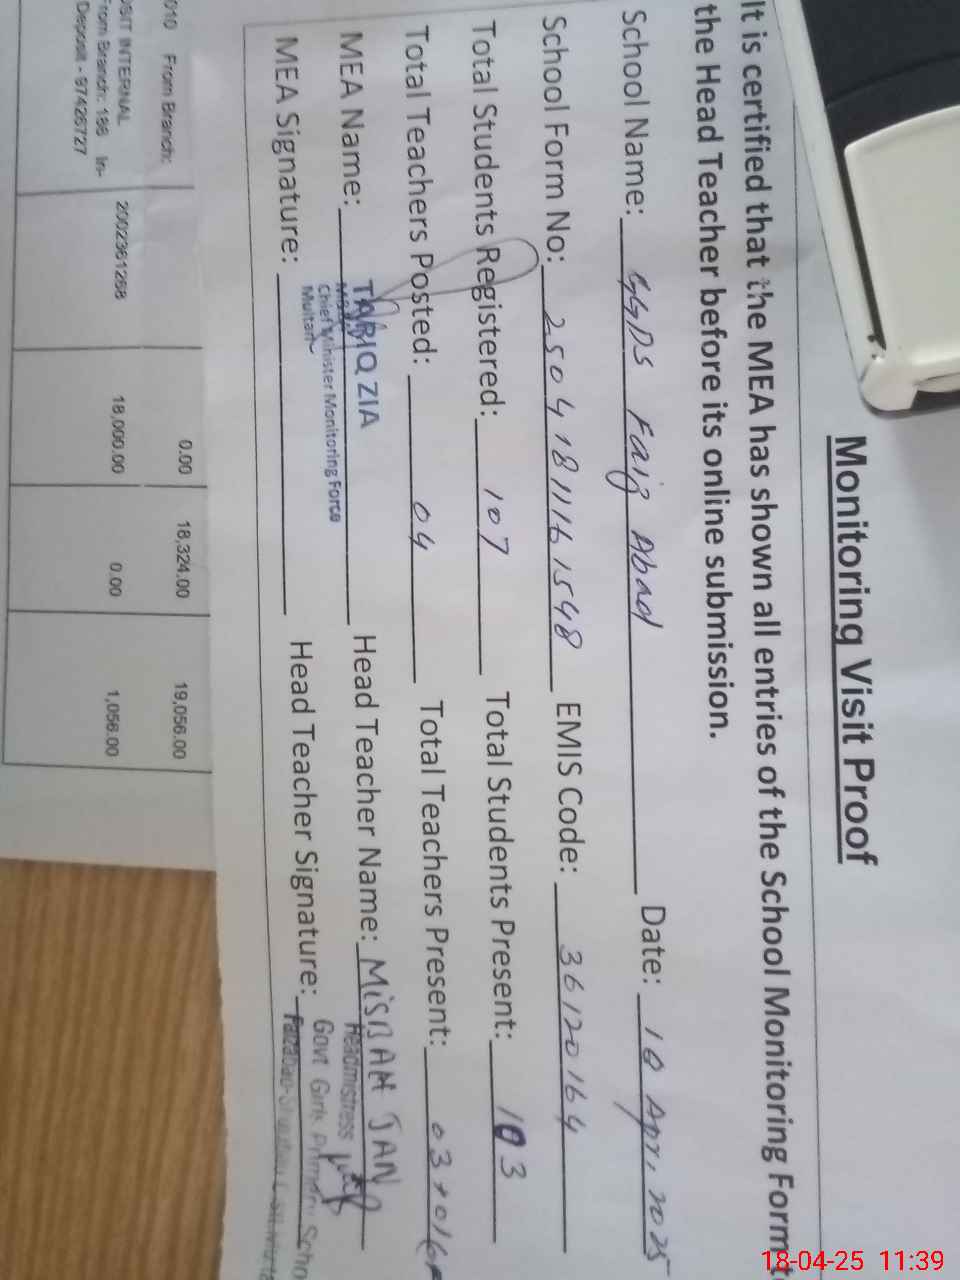 Monitoring Visit Proof
It is certified that the MEA has shown all entries of the School Monitoring Form to
the Head Teacher before its online submission.
School Name: GGPS Faiz Abad Date: 18 Apr, 2025
School Form No: 2504181116 1548 EMIS Code: 36120164
Total Students Registered: 107 Total Students Present: 103
Total Teachers Posted: 04 Total Teachers Present: 03+01
MEA Name: TARIQ ZIA Head Teacher Name: MISBAH JAN
Chief Minister Monitoring Force
Multan
Headmistress
MEA Signature: Head Teacher Signature:
Govt Girls Primary Scho
010 From Branch: 0.00 18,324.00 19,056.00
OSIT INTERNAL 2002361268 18,000.00 0.00 1,056.00
From Branch: 186 In-
Deposit - 97426727
18-04-25 11:39